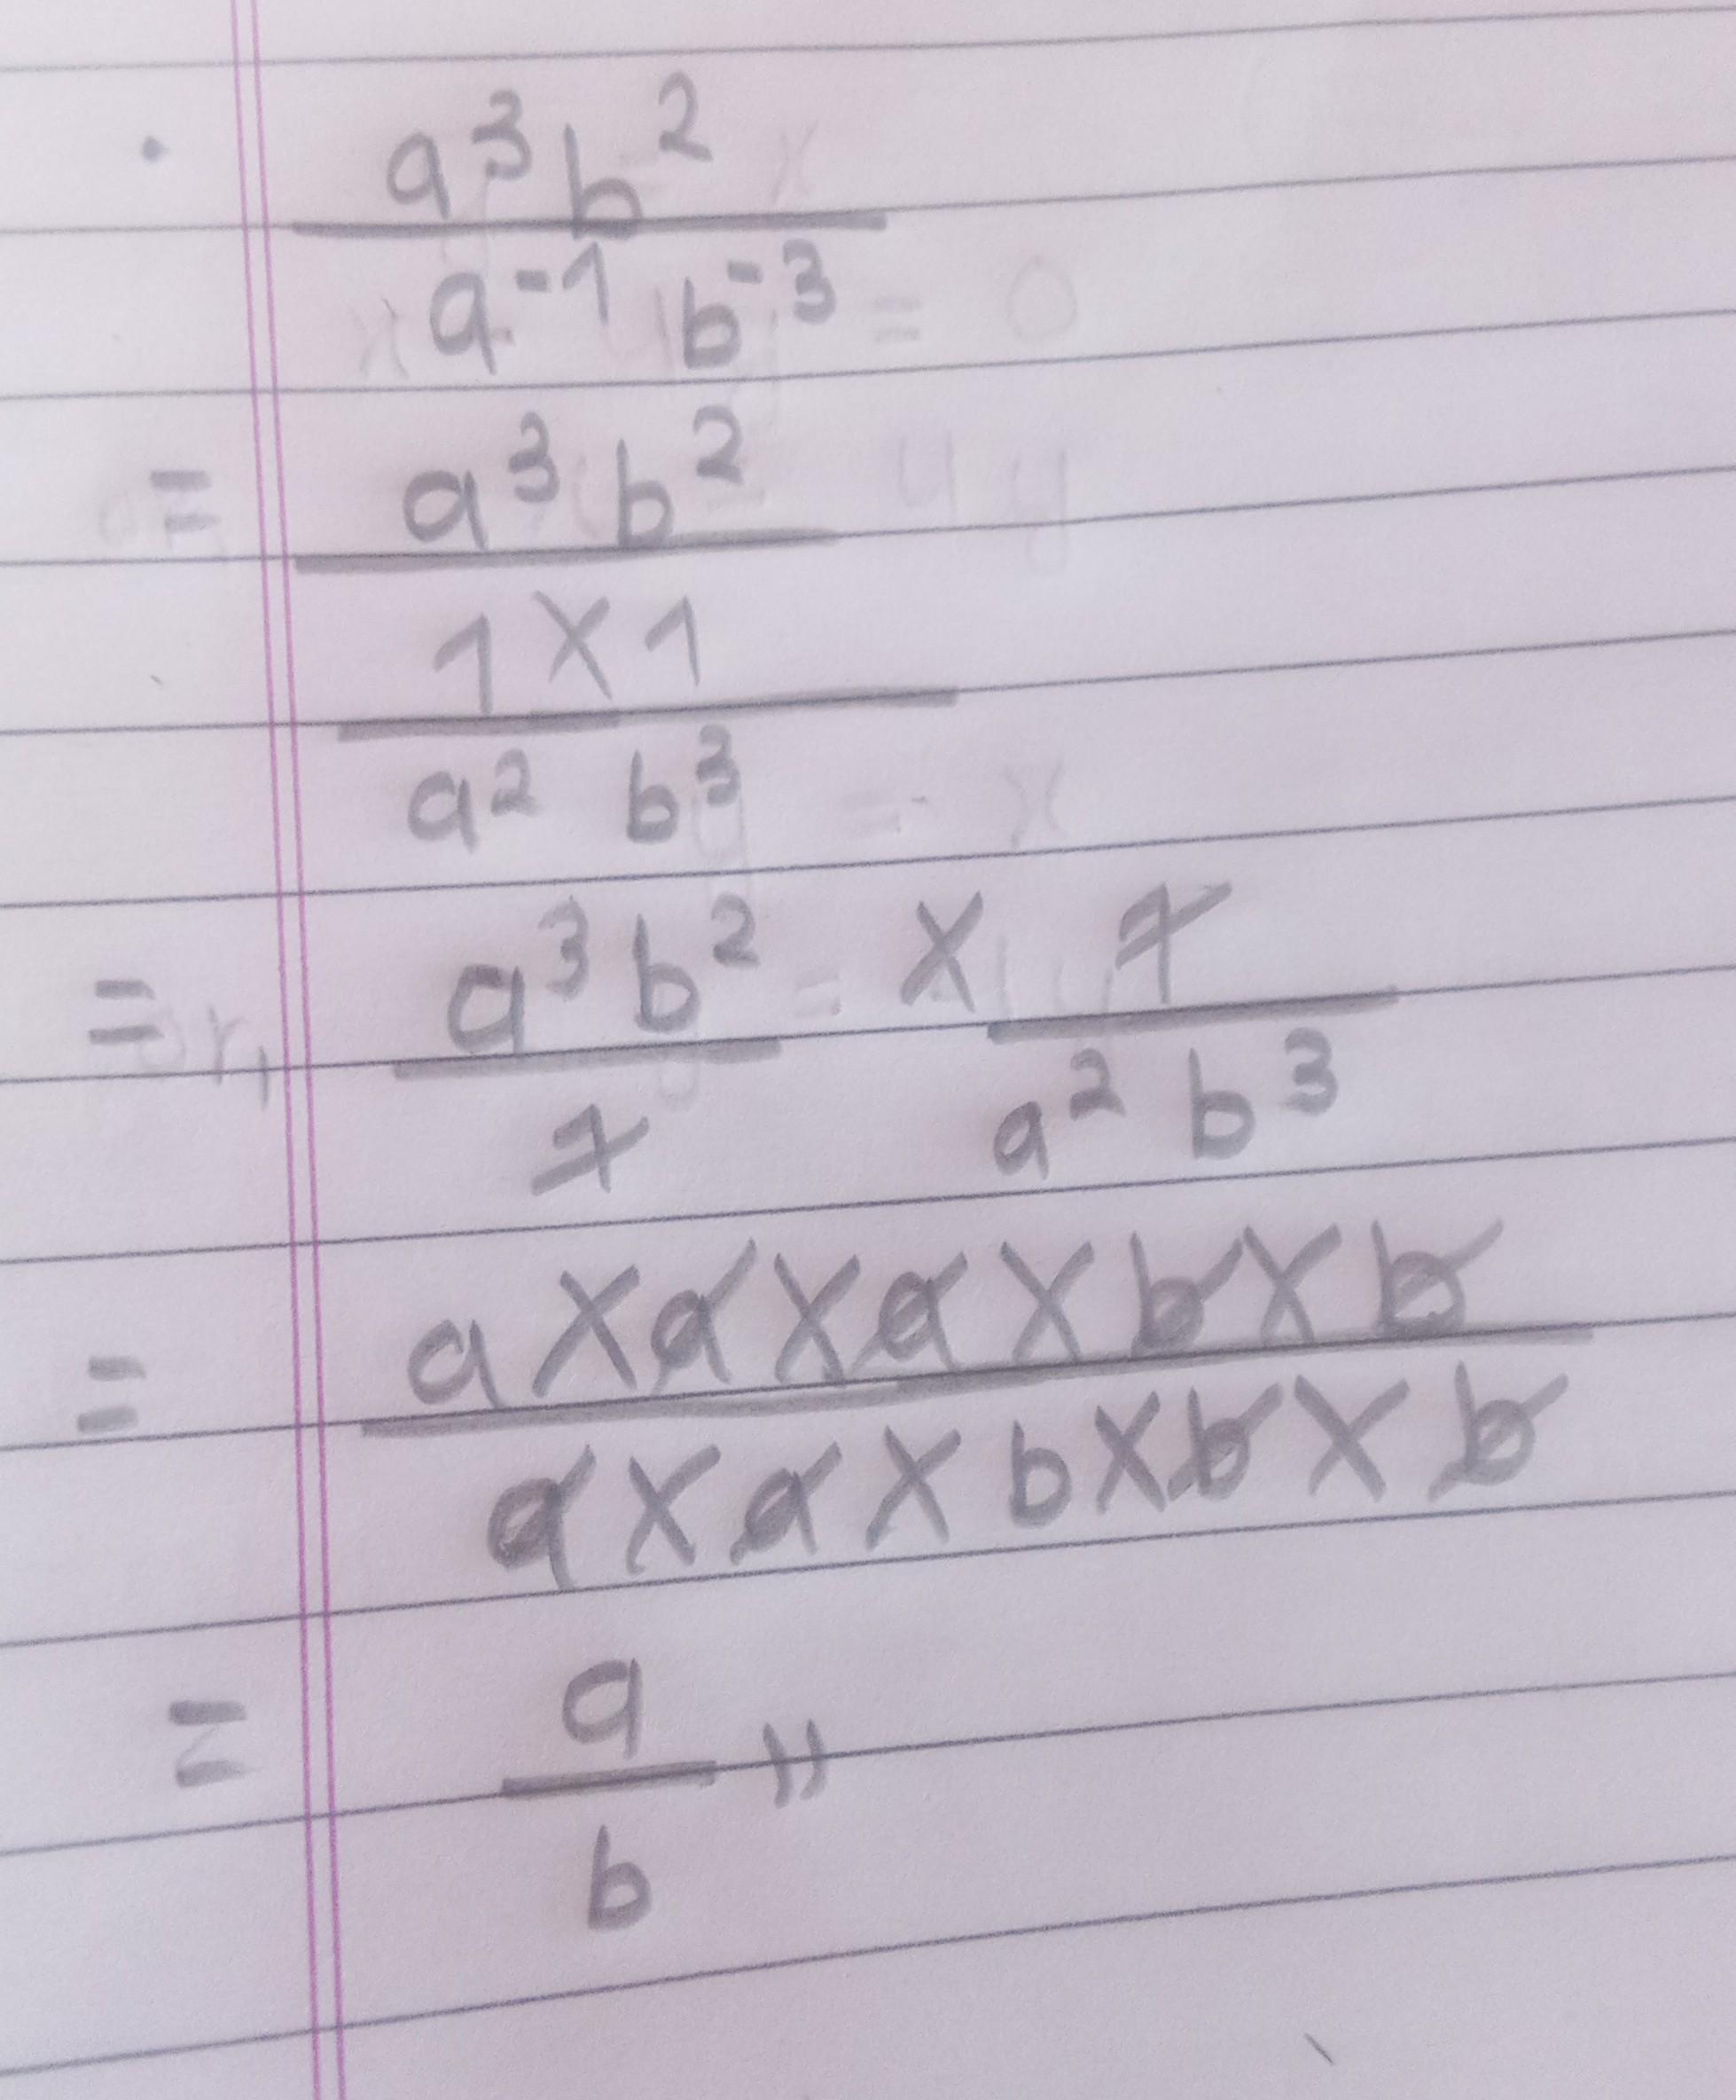 a³b²
a⁻¹ b⁻³
= a³ b²
1 × 1
a² b³
= a³b² × 1
1 a² b³
= a × a × a × b × b
a × a × b × b × b
= a
b "